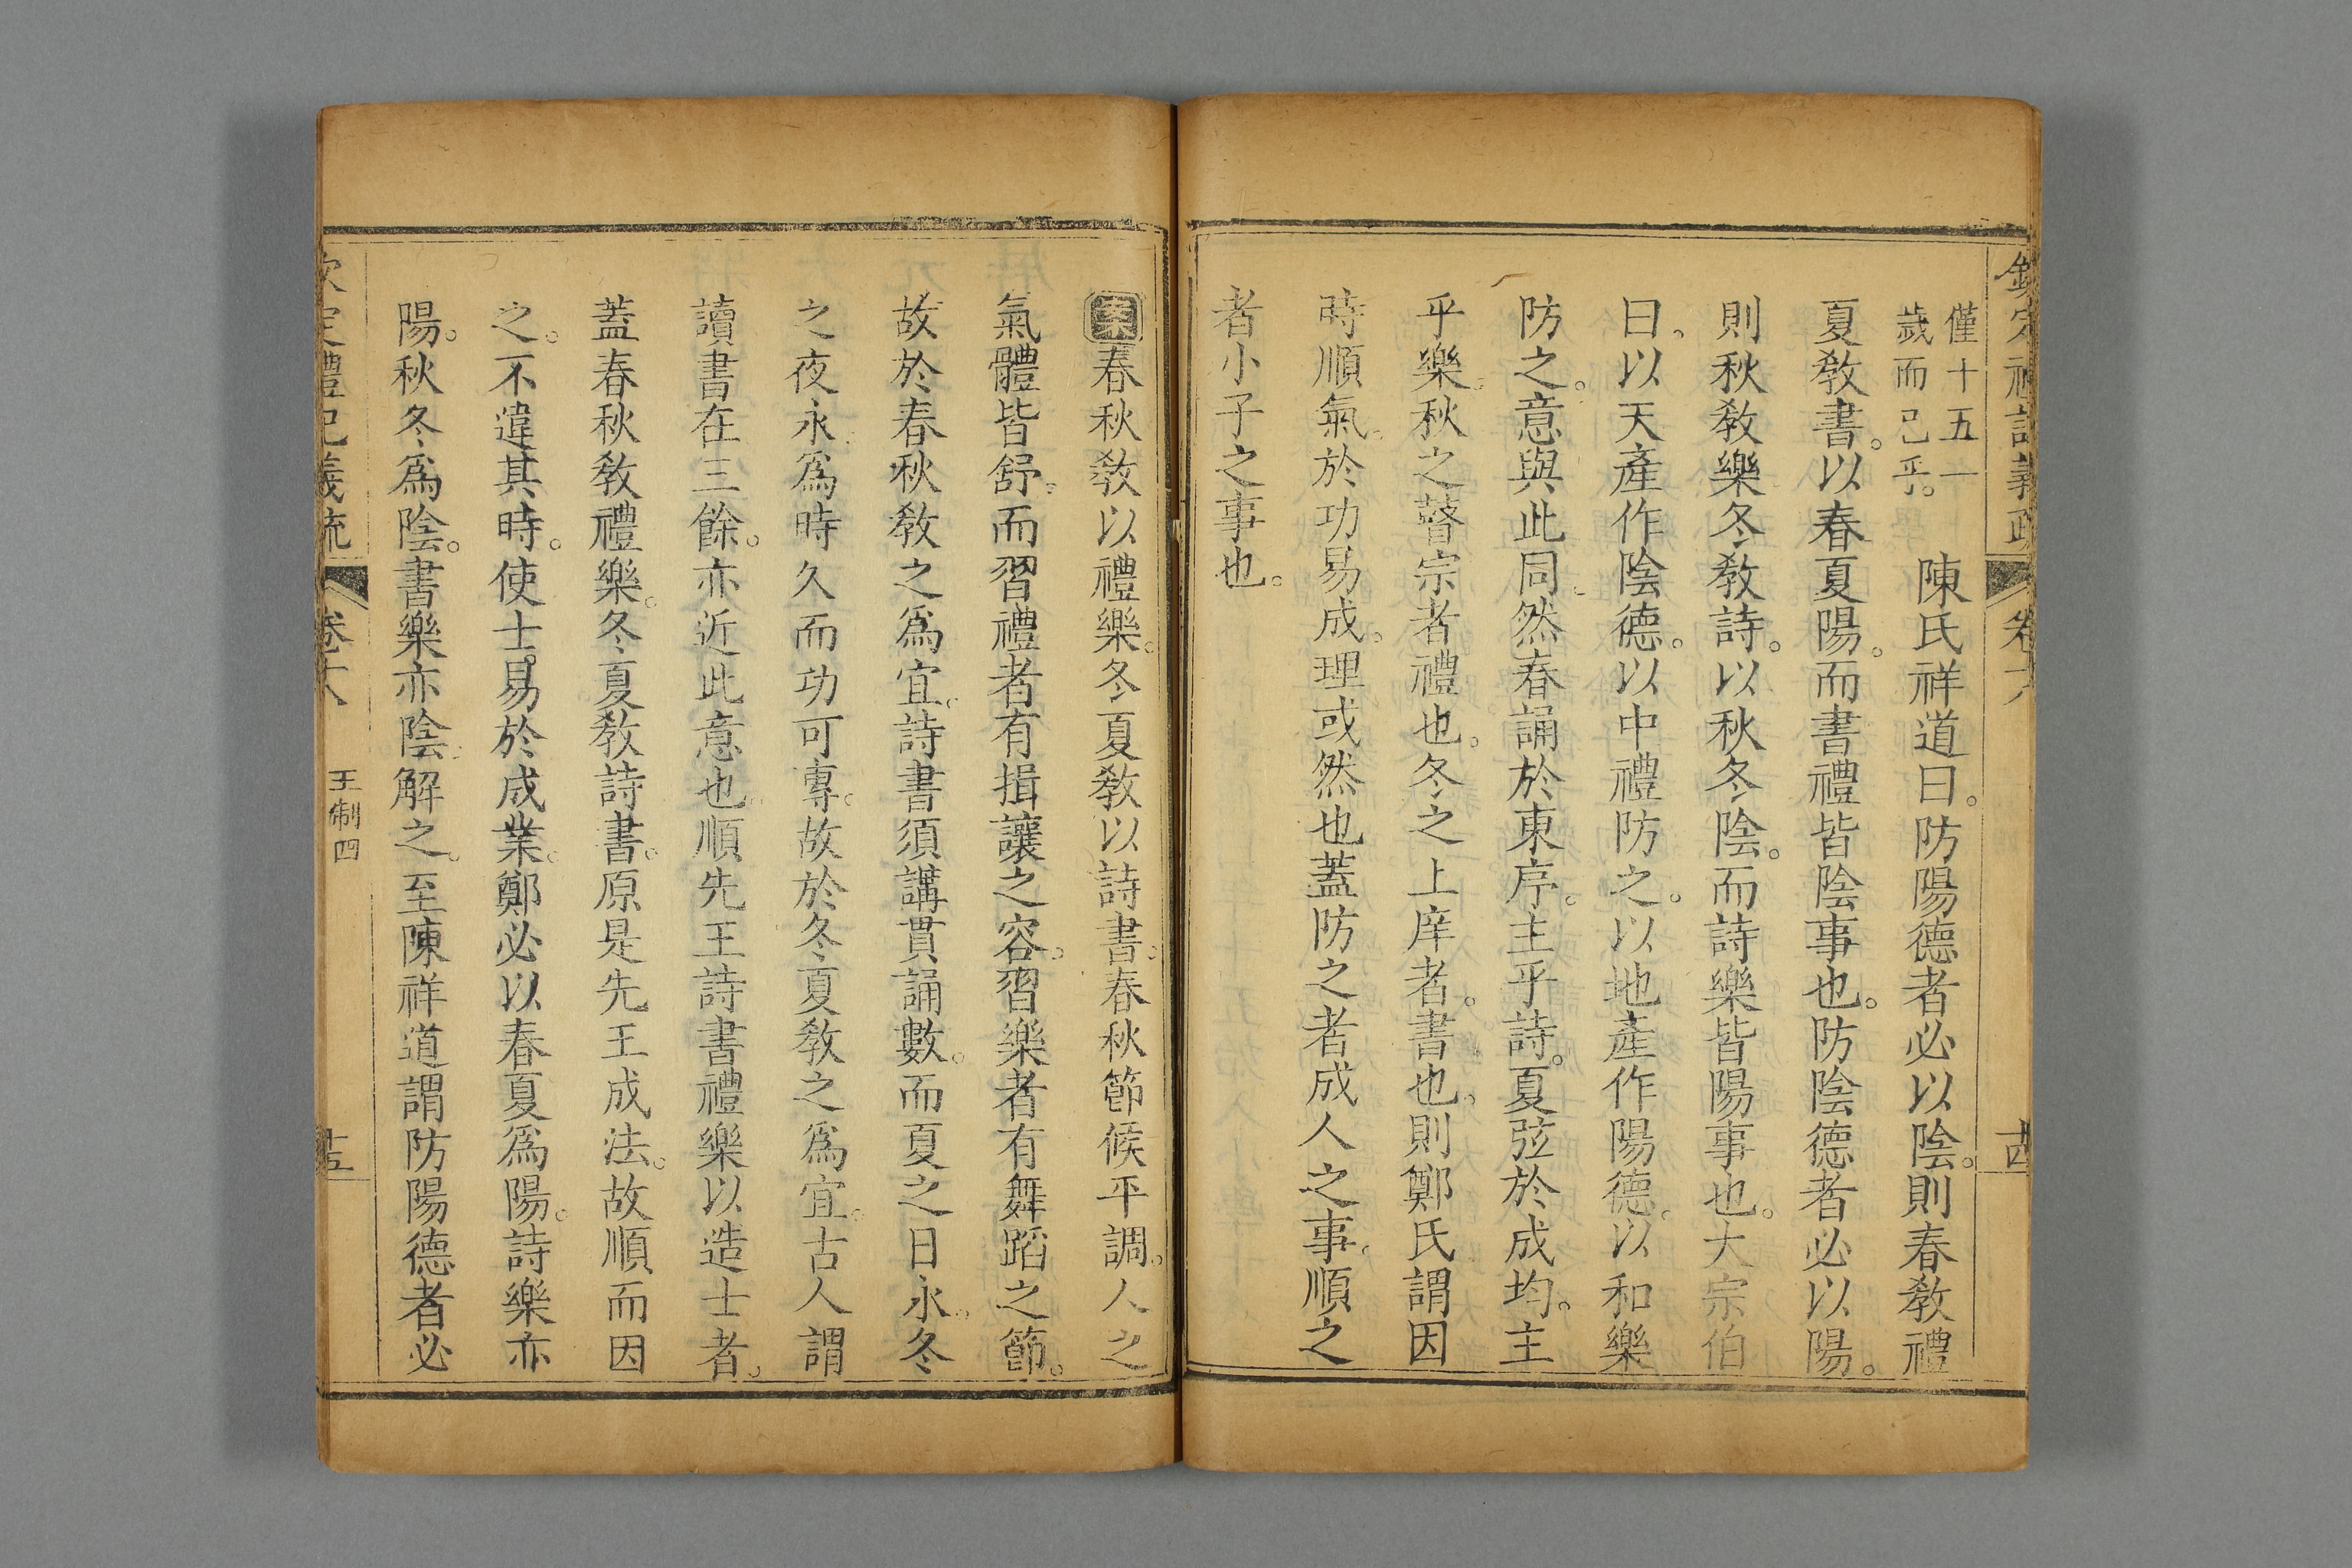 欽定禮記義疏 卷十八 十四
僅十五一
歲而已乎。
陳氏祥道曰。防陽德者必以陰。則春教禮
夏教書。以春夏陽。而書禮皆陰事也。防陰德者必以陽。
則秋教樂冬教詩。以秋冬陰。而詩樂皆陽事也。大宗伯
曰。以天產作陰德。以中禮防之。以地產作陽德。以和樂
防之。意與此同。然春誦於東序。主乎詩。夏弦於成均。主
乎樂。秋之瞽宗者禮也。冬之上庠者。書也。則鄭氏謂因
時順氣。於功易成。理或然也蓋防之者成人之事。順之
者小子之事也。
案春秋教以禮樂。冬夏教以詩書。春秋節候平調。人之
氣體皆舒。而習禮者有揖讓之容。習樂者有舞蹈之節。
故於春秋教之爲宜。詩書須講貫誦數。而夏之日永。冬
之夜永。爲時久而功可專。故於冬夏教之爲宜。古人謂
讀書在三餘。亦近此意也。順先王詩書禮樂以造士者。
蓋春秋教禮樂。冬夏教詩書。原是先王成法。故順而因
之。不違其時。使士。易於成業。鄭必以春夏爲陽。詩樂亦
陽。秋冬爲陰。書樂亦陰。解之。至陳祥道謂防陽德者必
欽定禮記義疏 卷十八 王制四 十五